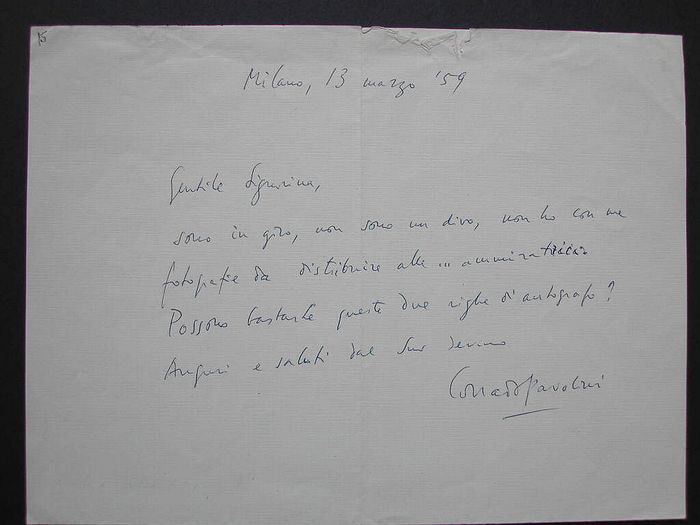 15
Milano, 13 marzo '59
Gentile Signorina,
sono in giro, non sono un divo, non ho con me
fotografie da distribuire alle... ammiratrici.
Possono bastarle queste due righe di autografo?
Auguri e saluti dal Suo devmo
Corrado Pavolini